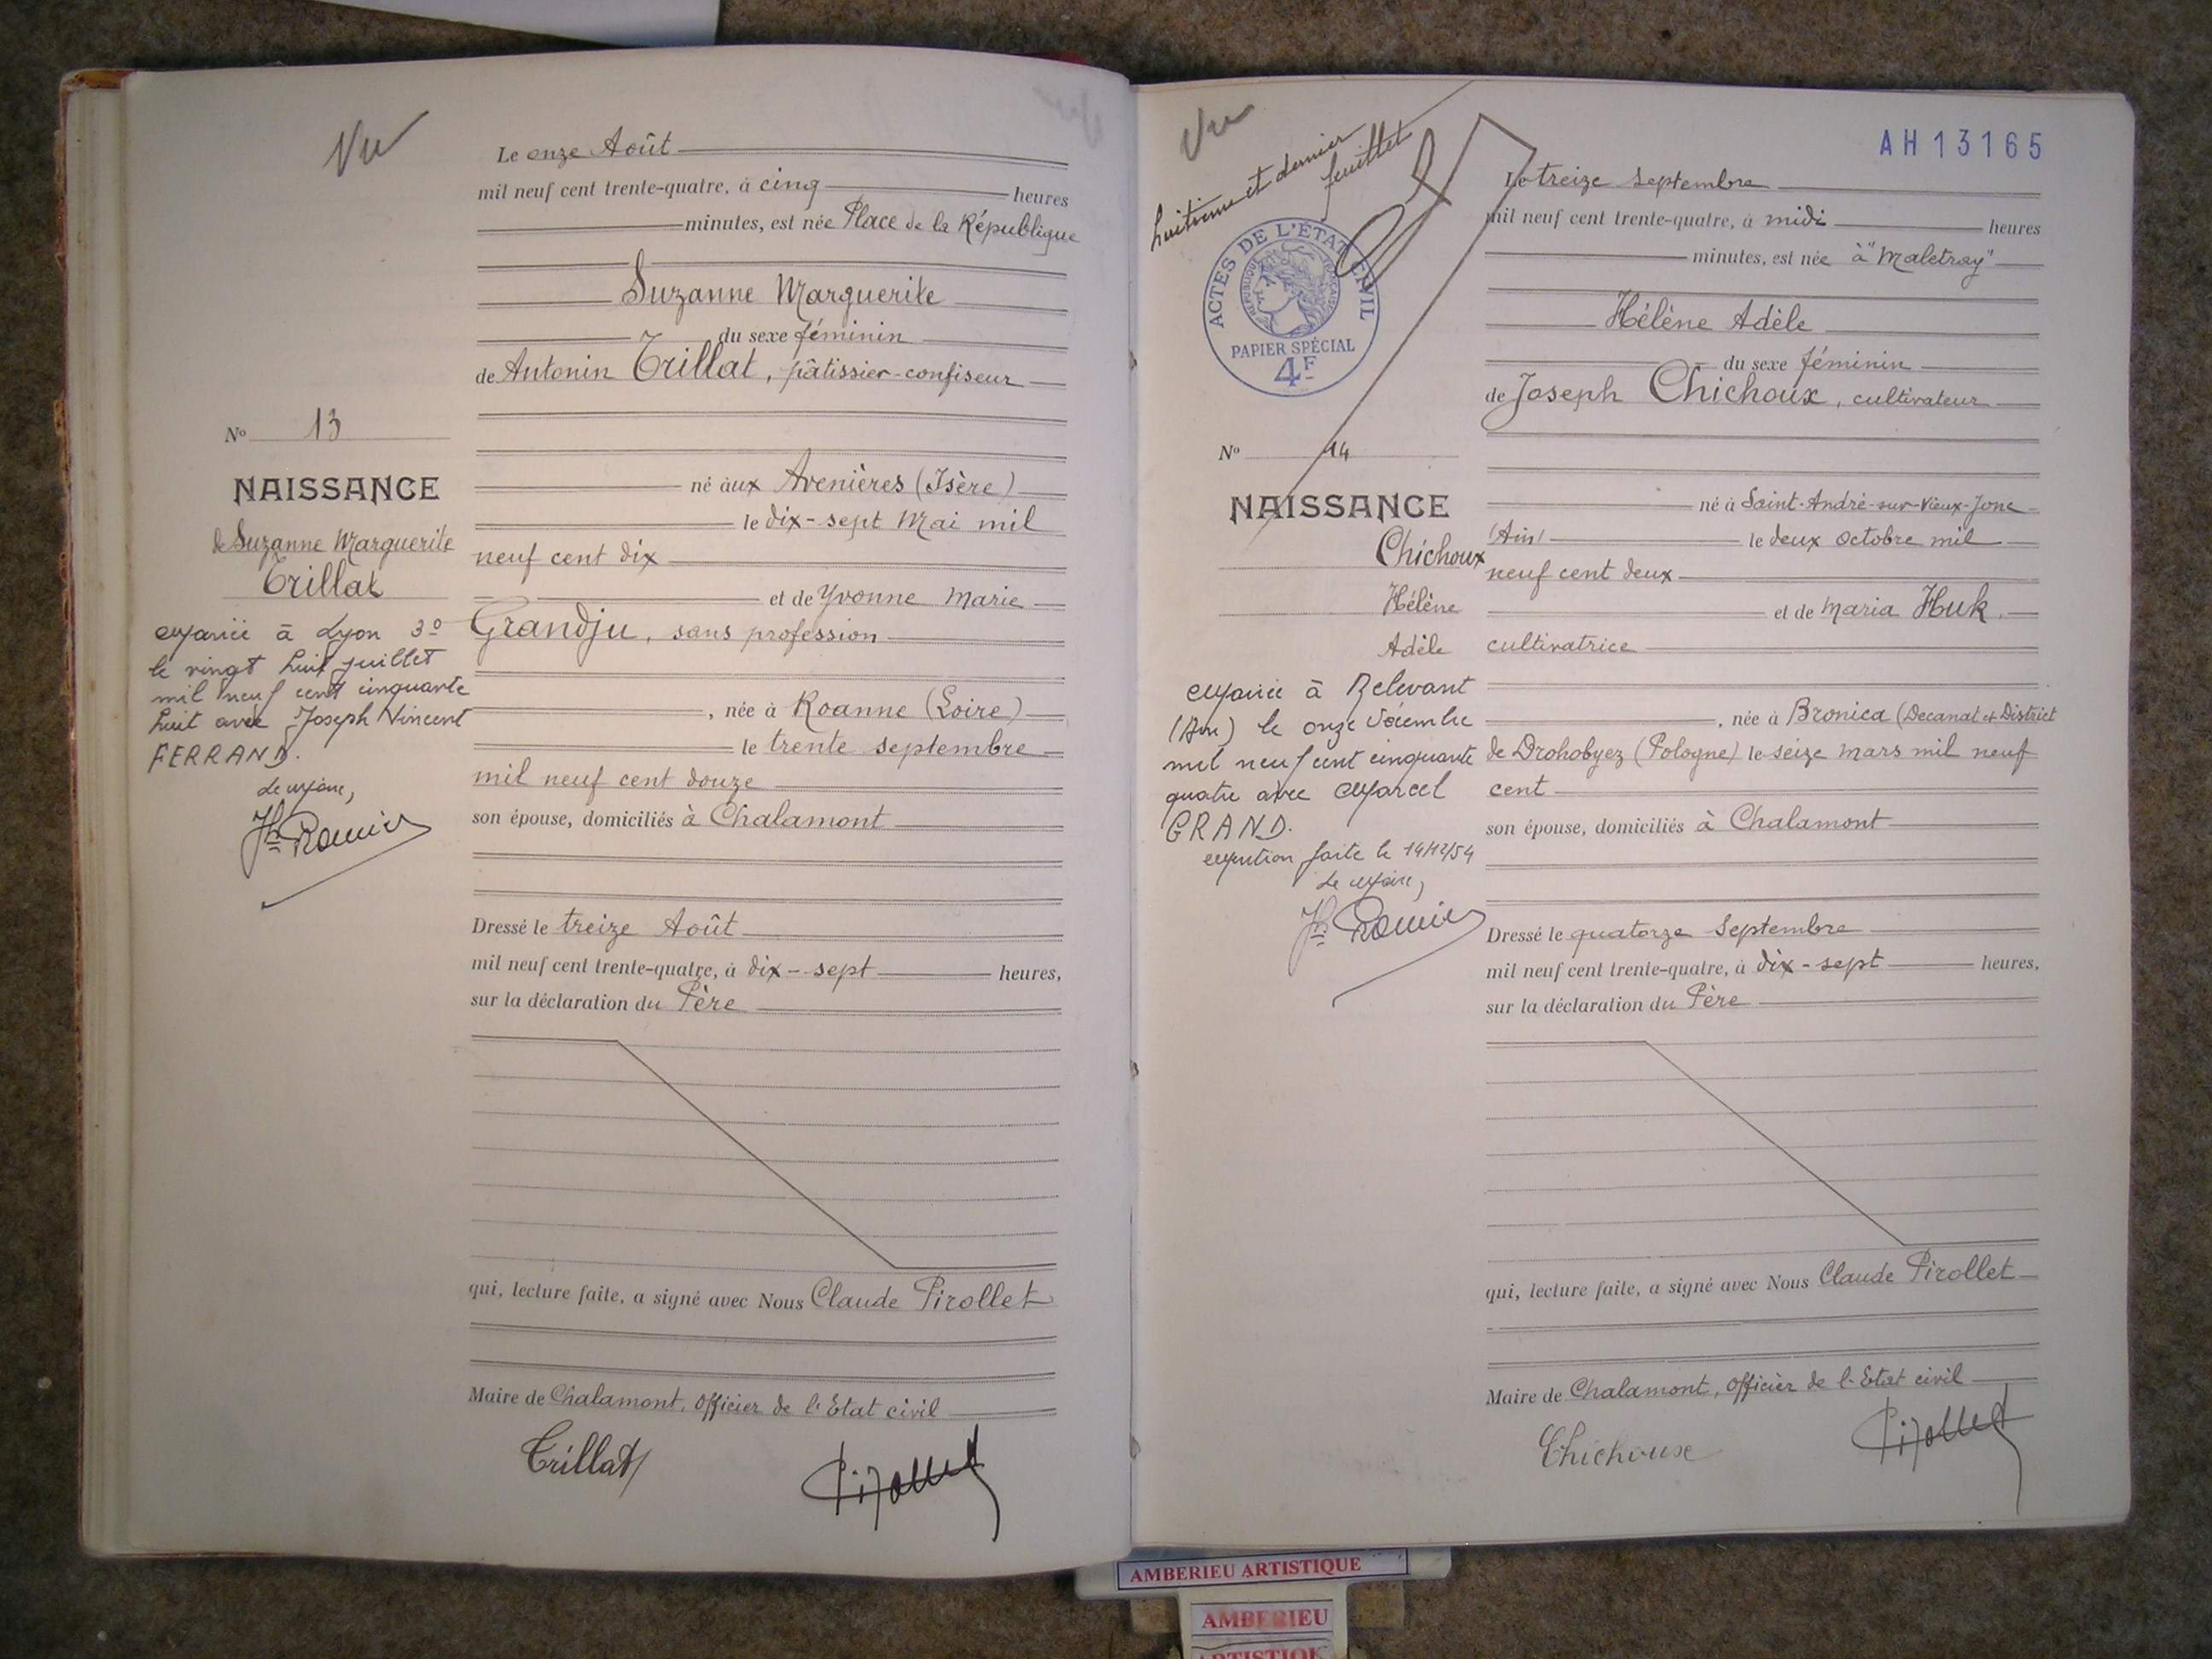 Vu
Le onze Août
mil neuf cent trente-quatre, à cinq heures
minutes, est née Place de la République
Suzanne Marguerite
du sexe féminin
de Antonin Trillat, pâtissier-confiseur
né aux Avenières (Isère)
le dix-sept Mai mil
neuf cent dix
et de Yvonne Marie
Grandju, sans profession
, née à Roanne (Loire)
le trente septembre
mil neuf cent douze
son épouse, domiciliés à Chalamont
Dressé le treize Août
mil neuf cent trente-quatre, à dix-sept heures,
sur la déclaration du Père
qui, lecture faite, a signé avec Nous Claude Pirollet
Maire de Chalamont, Officier de l'Etat civil
Trillat
Pirollet
No 13
NAISSANCE
de Suzanne Marguerite
Trillat
Mariée à Lyon 3º
le vingt huit juillet
mil neuf cent cinquante
huit avec Joseph Vincent
FERRAND.
Le Maire,
Vu
huitième et dernier
feuillet
ACTES DE L'ETAT CIVIL
REPUBLIQUE FRANÇAISE
PAPIER SPÉCIAL
4F
AH13165
Le treize Septembre
mil neuf cent trente-quatre, à midi heures
minutes, est née à "Maletray"
Hélène Adèle
du sexe féminin
de Joseph Chichoux, cultivateur
né à Saint-André-sur-Vieux-Jonc
(Ain) le deux octobre mil
neuf cent deux
et de Maria Huk,
cultivatrice
, née à Bronica (Decanat et District
de Drohobycz (Pologne) le seize mars mil neuf
cent
son épouse, domiciliés à Chalamont
Dressé le quatorze Septembre
mil neuf cent trente-quatre, à dix-sept heures,
sur la déclaration du Père
qui, lecture faite, a signé avec Nous Claude Pirollet
Maire de Chalamont, Officier de l'Etat civil
Chichoux
Pirollet
No 14
NAISSANCE
Chichoux
Hélène
Adèle
Mariée à Relevant
(Ain) le onze Décembre
mil neuf cent cinquante
quatre avec Marcel
GRAND.
Mention faite le 14/12/54
Le Maire,
AMBERIEU ARTISTIQUE
AMBERIEU